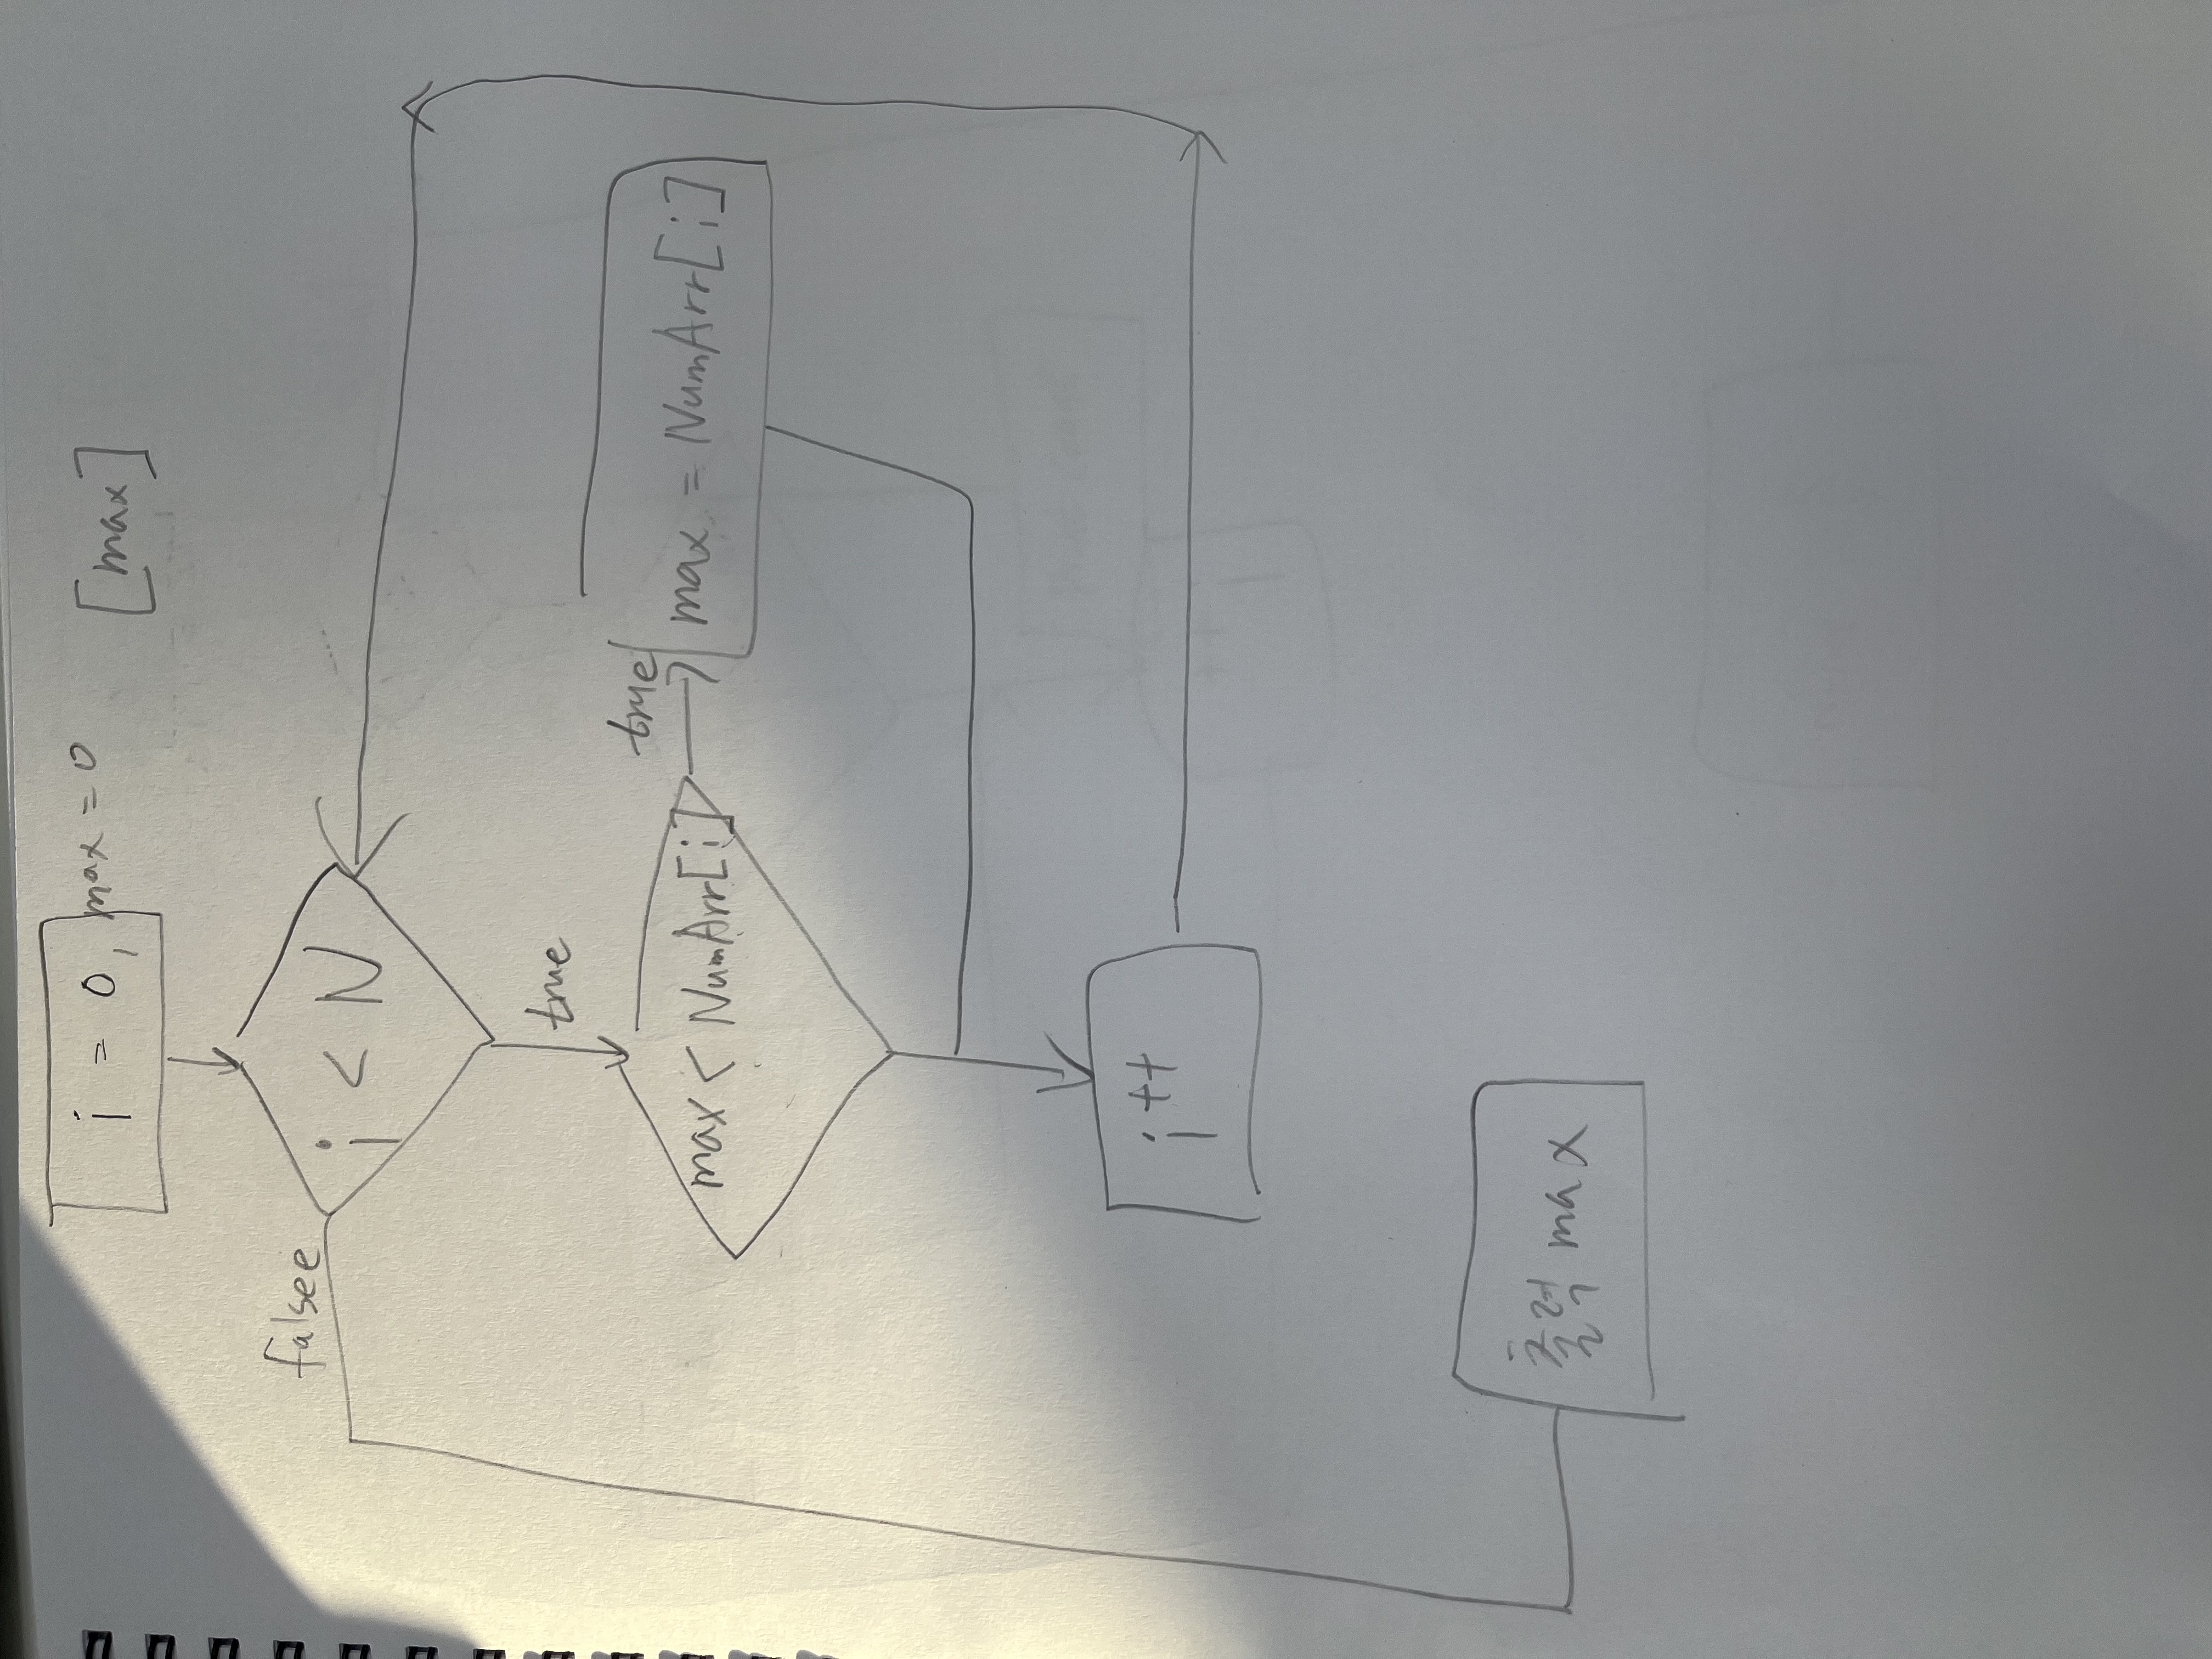 i = 0, max = 0
[max]
falsee
i < N
true
max < NumArr[i]
true
max = NumArr[i]
i++
출력 max